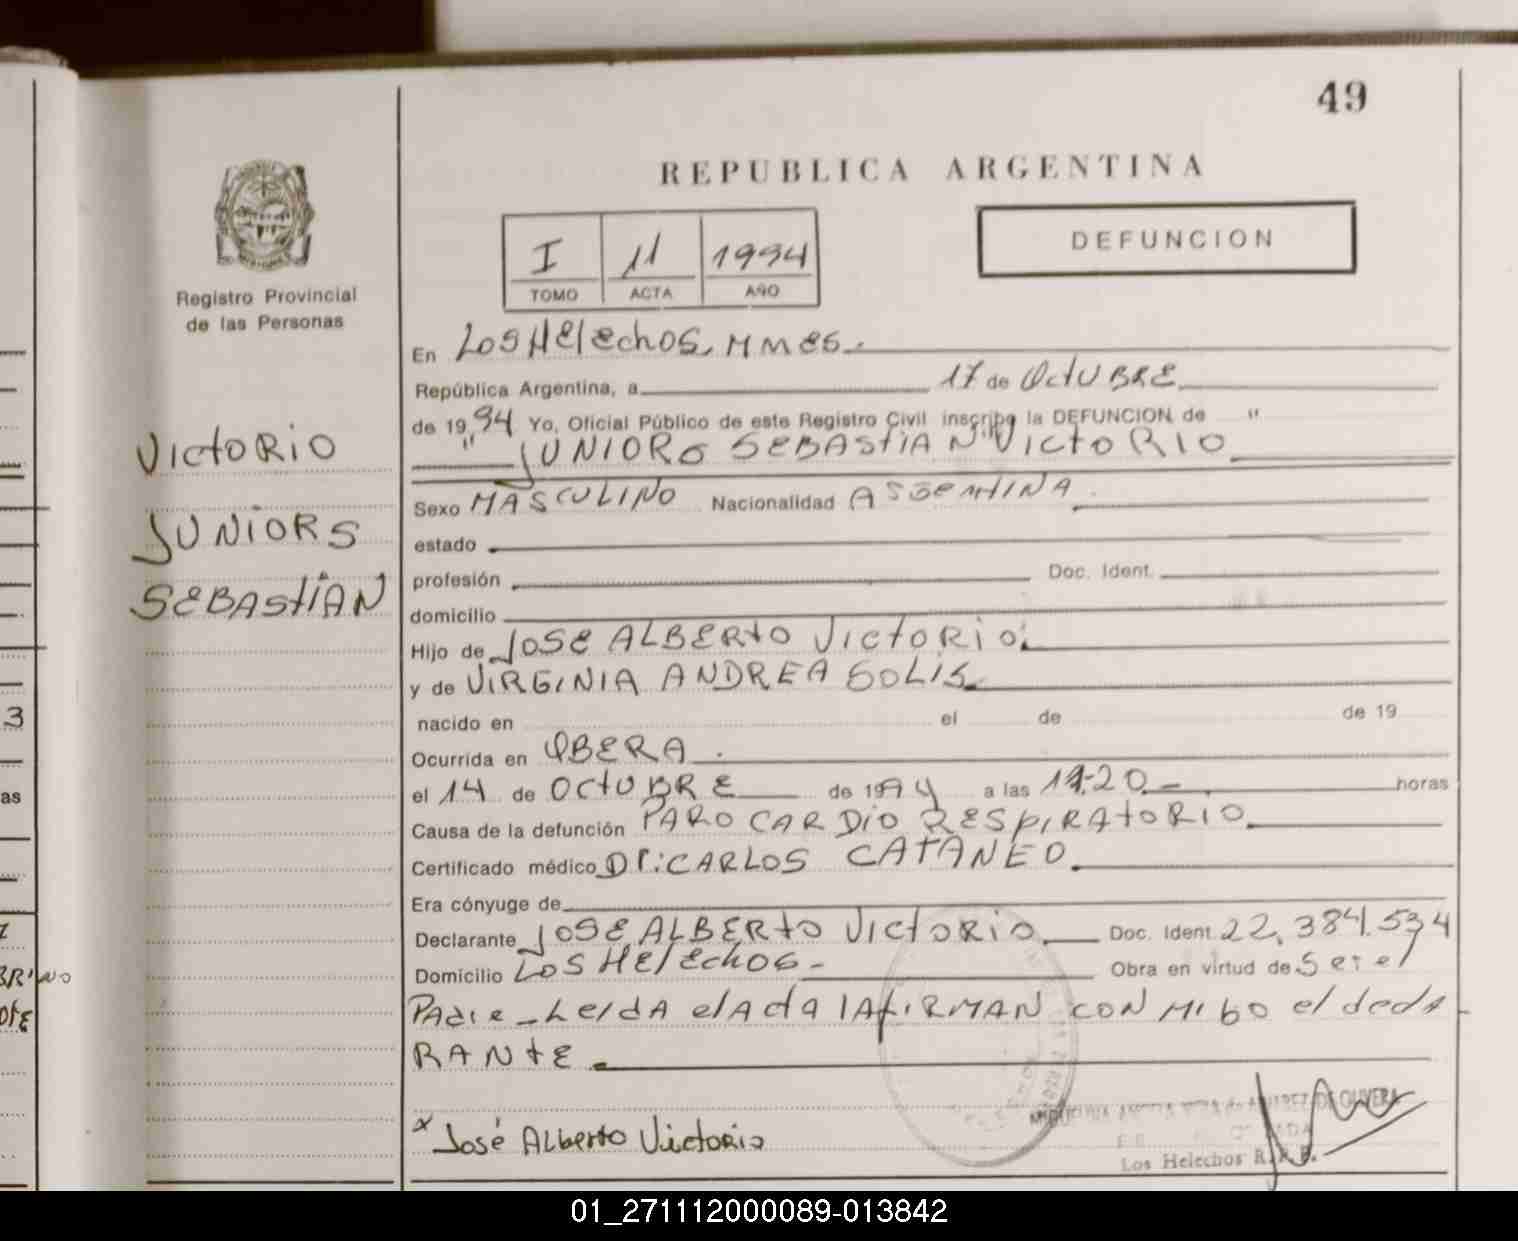 49
REPUBLICA ARGENTINA
I 11 1994
TOMO ACTA AÑO
DEFUNCION
Registro Provincial
de las Personas
VICTORIO
JUNIORS
SEBASTIAN
En Los Helechos, Mnes.
República Argentina, a 17 de OctUBRE
de 1994 Yo, Oficial Público de este Registro Civil inscribo la DEFUNCION de "
" JUNIORS SEBASTIAN VICTORIO
Sexo MASCULINO Nacionalidad ARGENTINA
estado
profesión Doc. Ident.
domicilio
Hijo de JOSE ALBERTO VICTORIO
y de VIRGINIA ANDREA SOLIS
nacido en el de de 19
Ocurrida en OBERA.
el 14 de OCTUBRE de 1994 a las horas
Causa de la defunción PARO CARDIO RESPIRATORIO
Certificado médico Dr: CARLOS CATANEO
Era cónyuge de
Declarante JOSE ALBERTO VICTORIO Doc. Ident. 22.384.534
Domicilio Los Helechos- Obra en virtud de Ser el
Padre - Leida el Acta la FIRMAN CON MIGO el decla
RANTE
x José Alberto Victorio
DE OLIVERA
Los Helechos R.P.P.
3
as
01_271112000089-013842